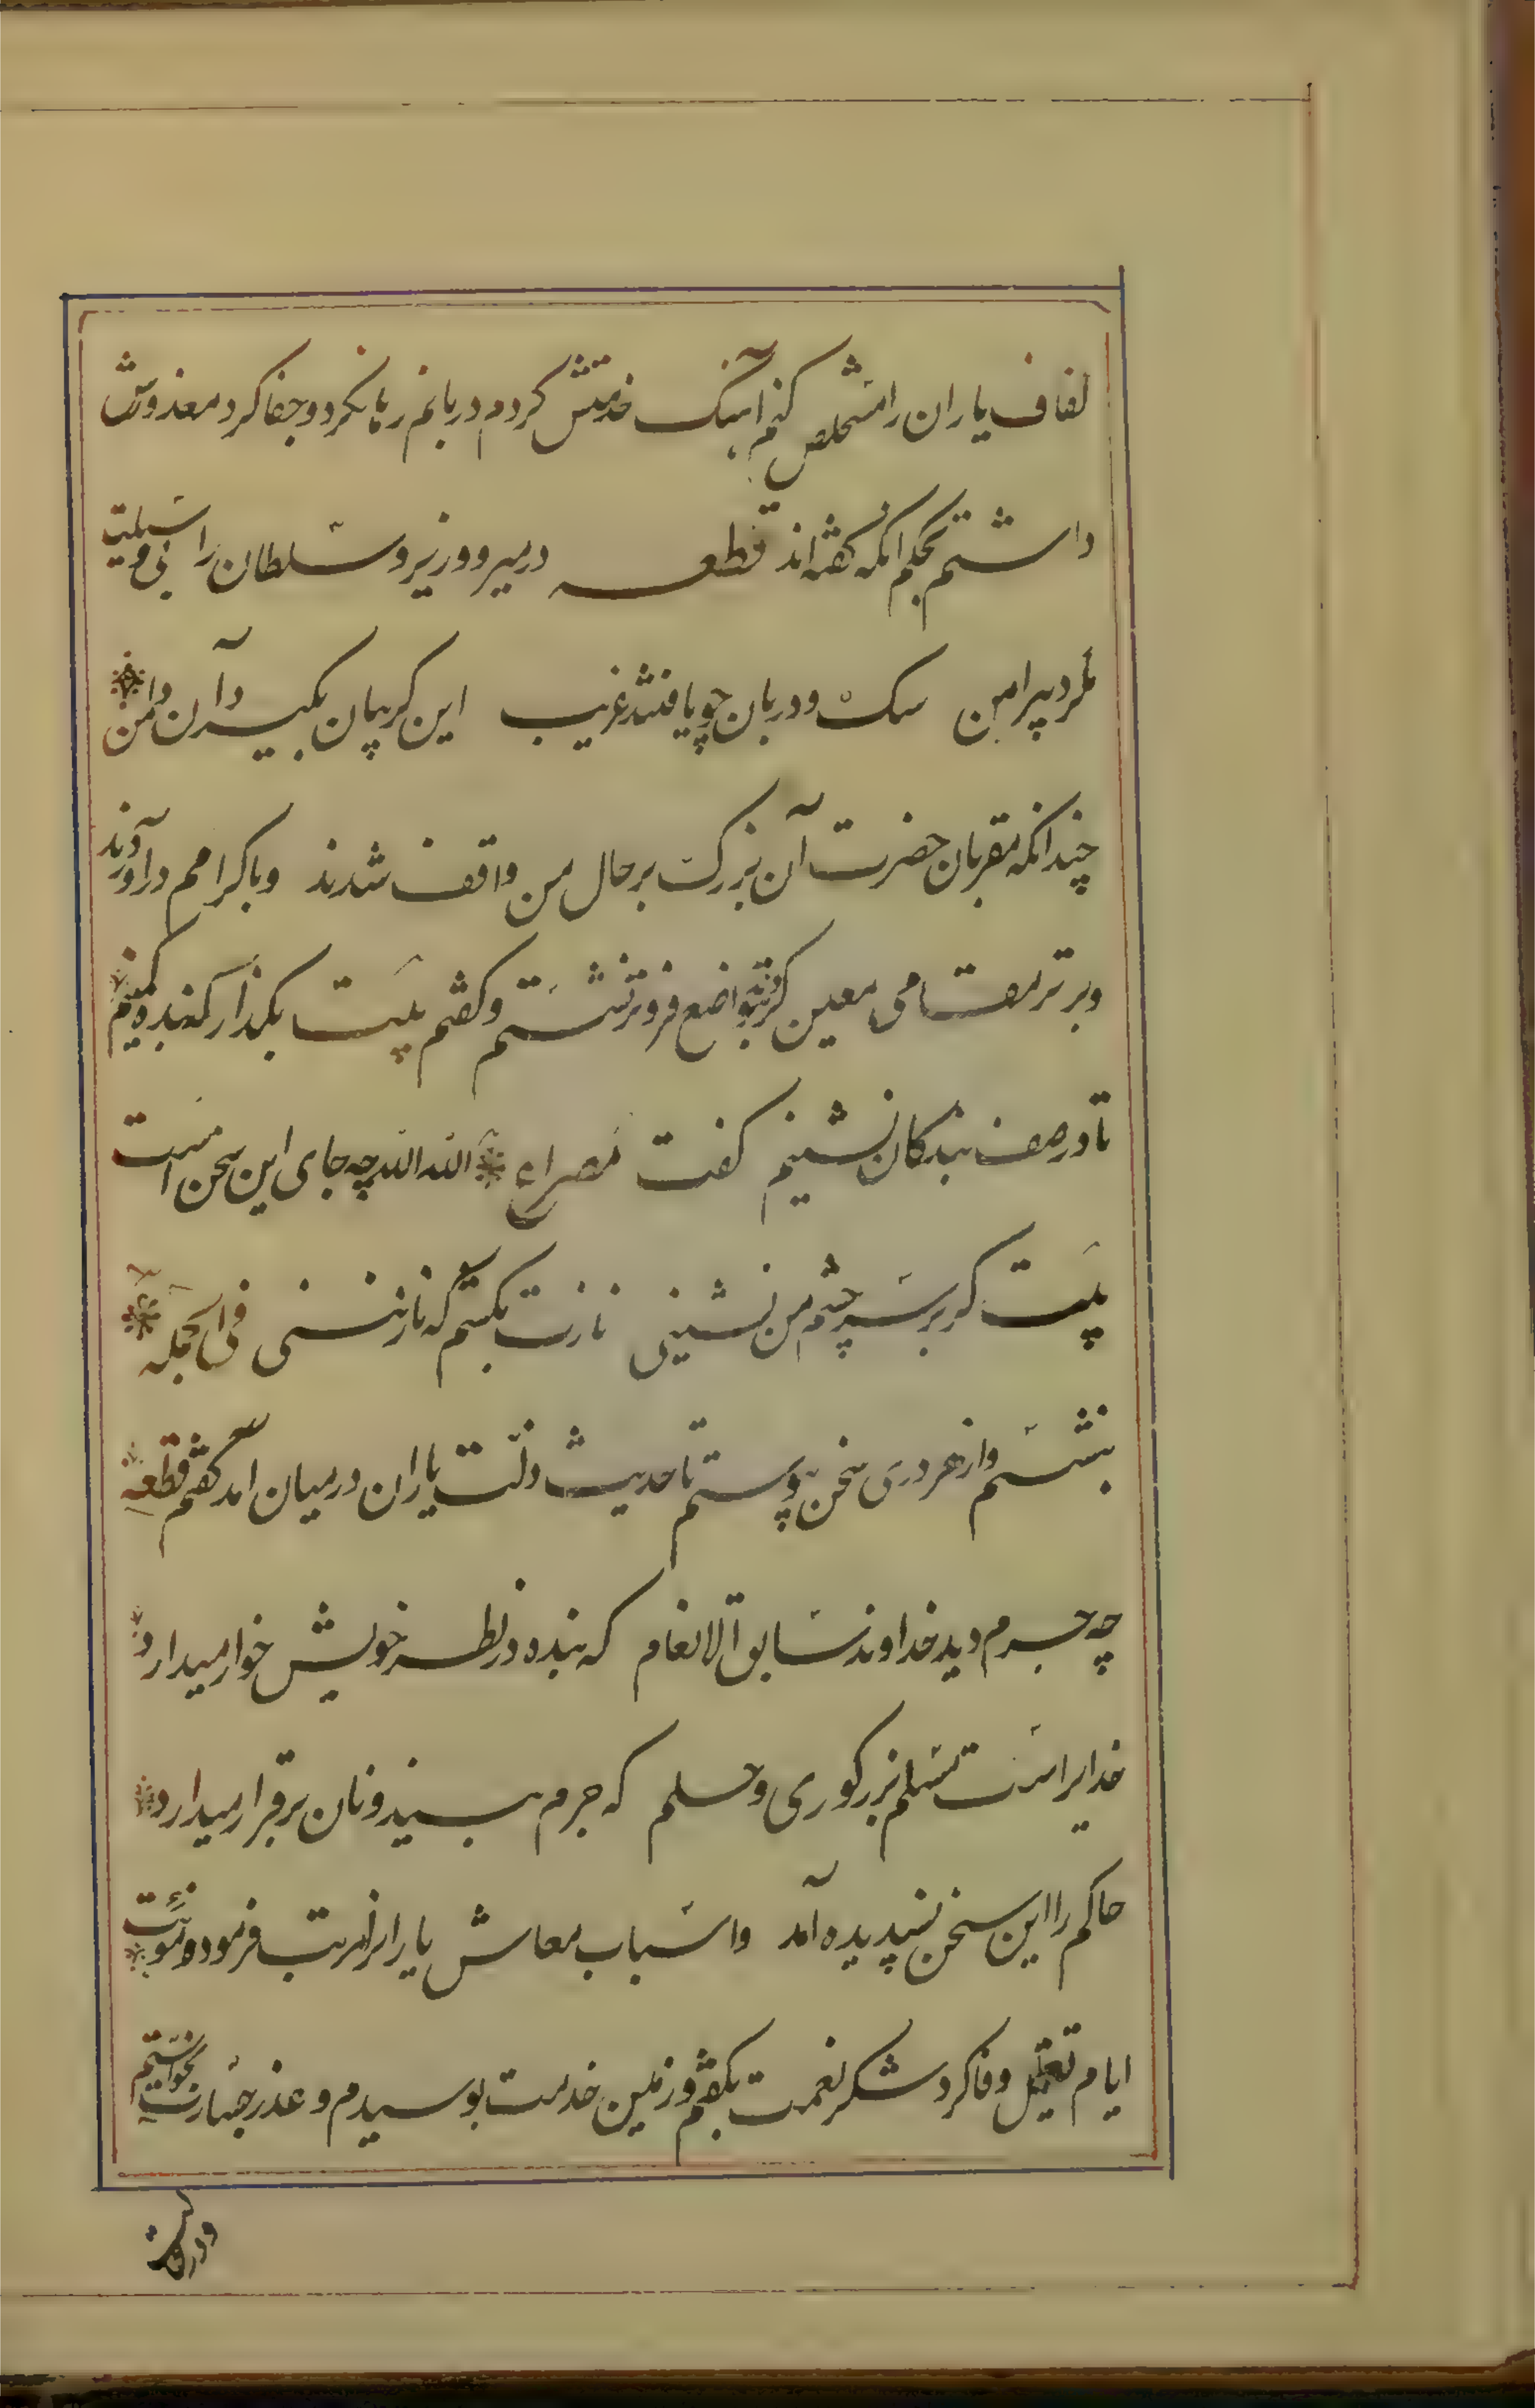 کفاف یاران را مستخلص کنم آهنگ خدمتش کردم دربانم رها نکرد و جفا کرد معذورش
داشتم بحکم آنکه گفته‌اند قطعه در میر و وزیر و سلطان را بی وسیلت
مگرد پیرامن سک و دربان چو یافتند غریب این کریبان بگیرد آن دامن
چندانکه مقربان حضرت آن بزرگ بر حال من واقف شدند و باکرامم درآوردند
و برتر مقامی معین کردند بتواضع فروتر نشستم و گفتم بیت بگذار که بنده کمینم
تا در صف بندگان نشینم گفت مصراع الله الله چه جای این سخن است
بیت گر بر سر چشم من نشینی نازت بکشم که نازنینی فی الجمله
بنشستم و از هر دری سخن پیوستم تا حدیث زلت یاران در میان آمد گفتم قطعه
چه جرم دید خداوند سابق الانعام که بنده در نظر خویش خوار میدارد
خدایراست مسلم بزرگوری و حلم که جرم بیند و نان برقرار میدارد
حاکم را این سخن پسندیده آمد و اسباب معاش یارانرا مرتب فرمود و مؤنت
ایام تعطیل وفا کرد شکر نعمت بگفتم و زمین خدمت بوسیدم و عذر جسارت بخواستم